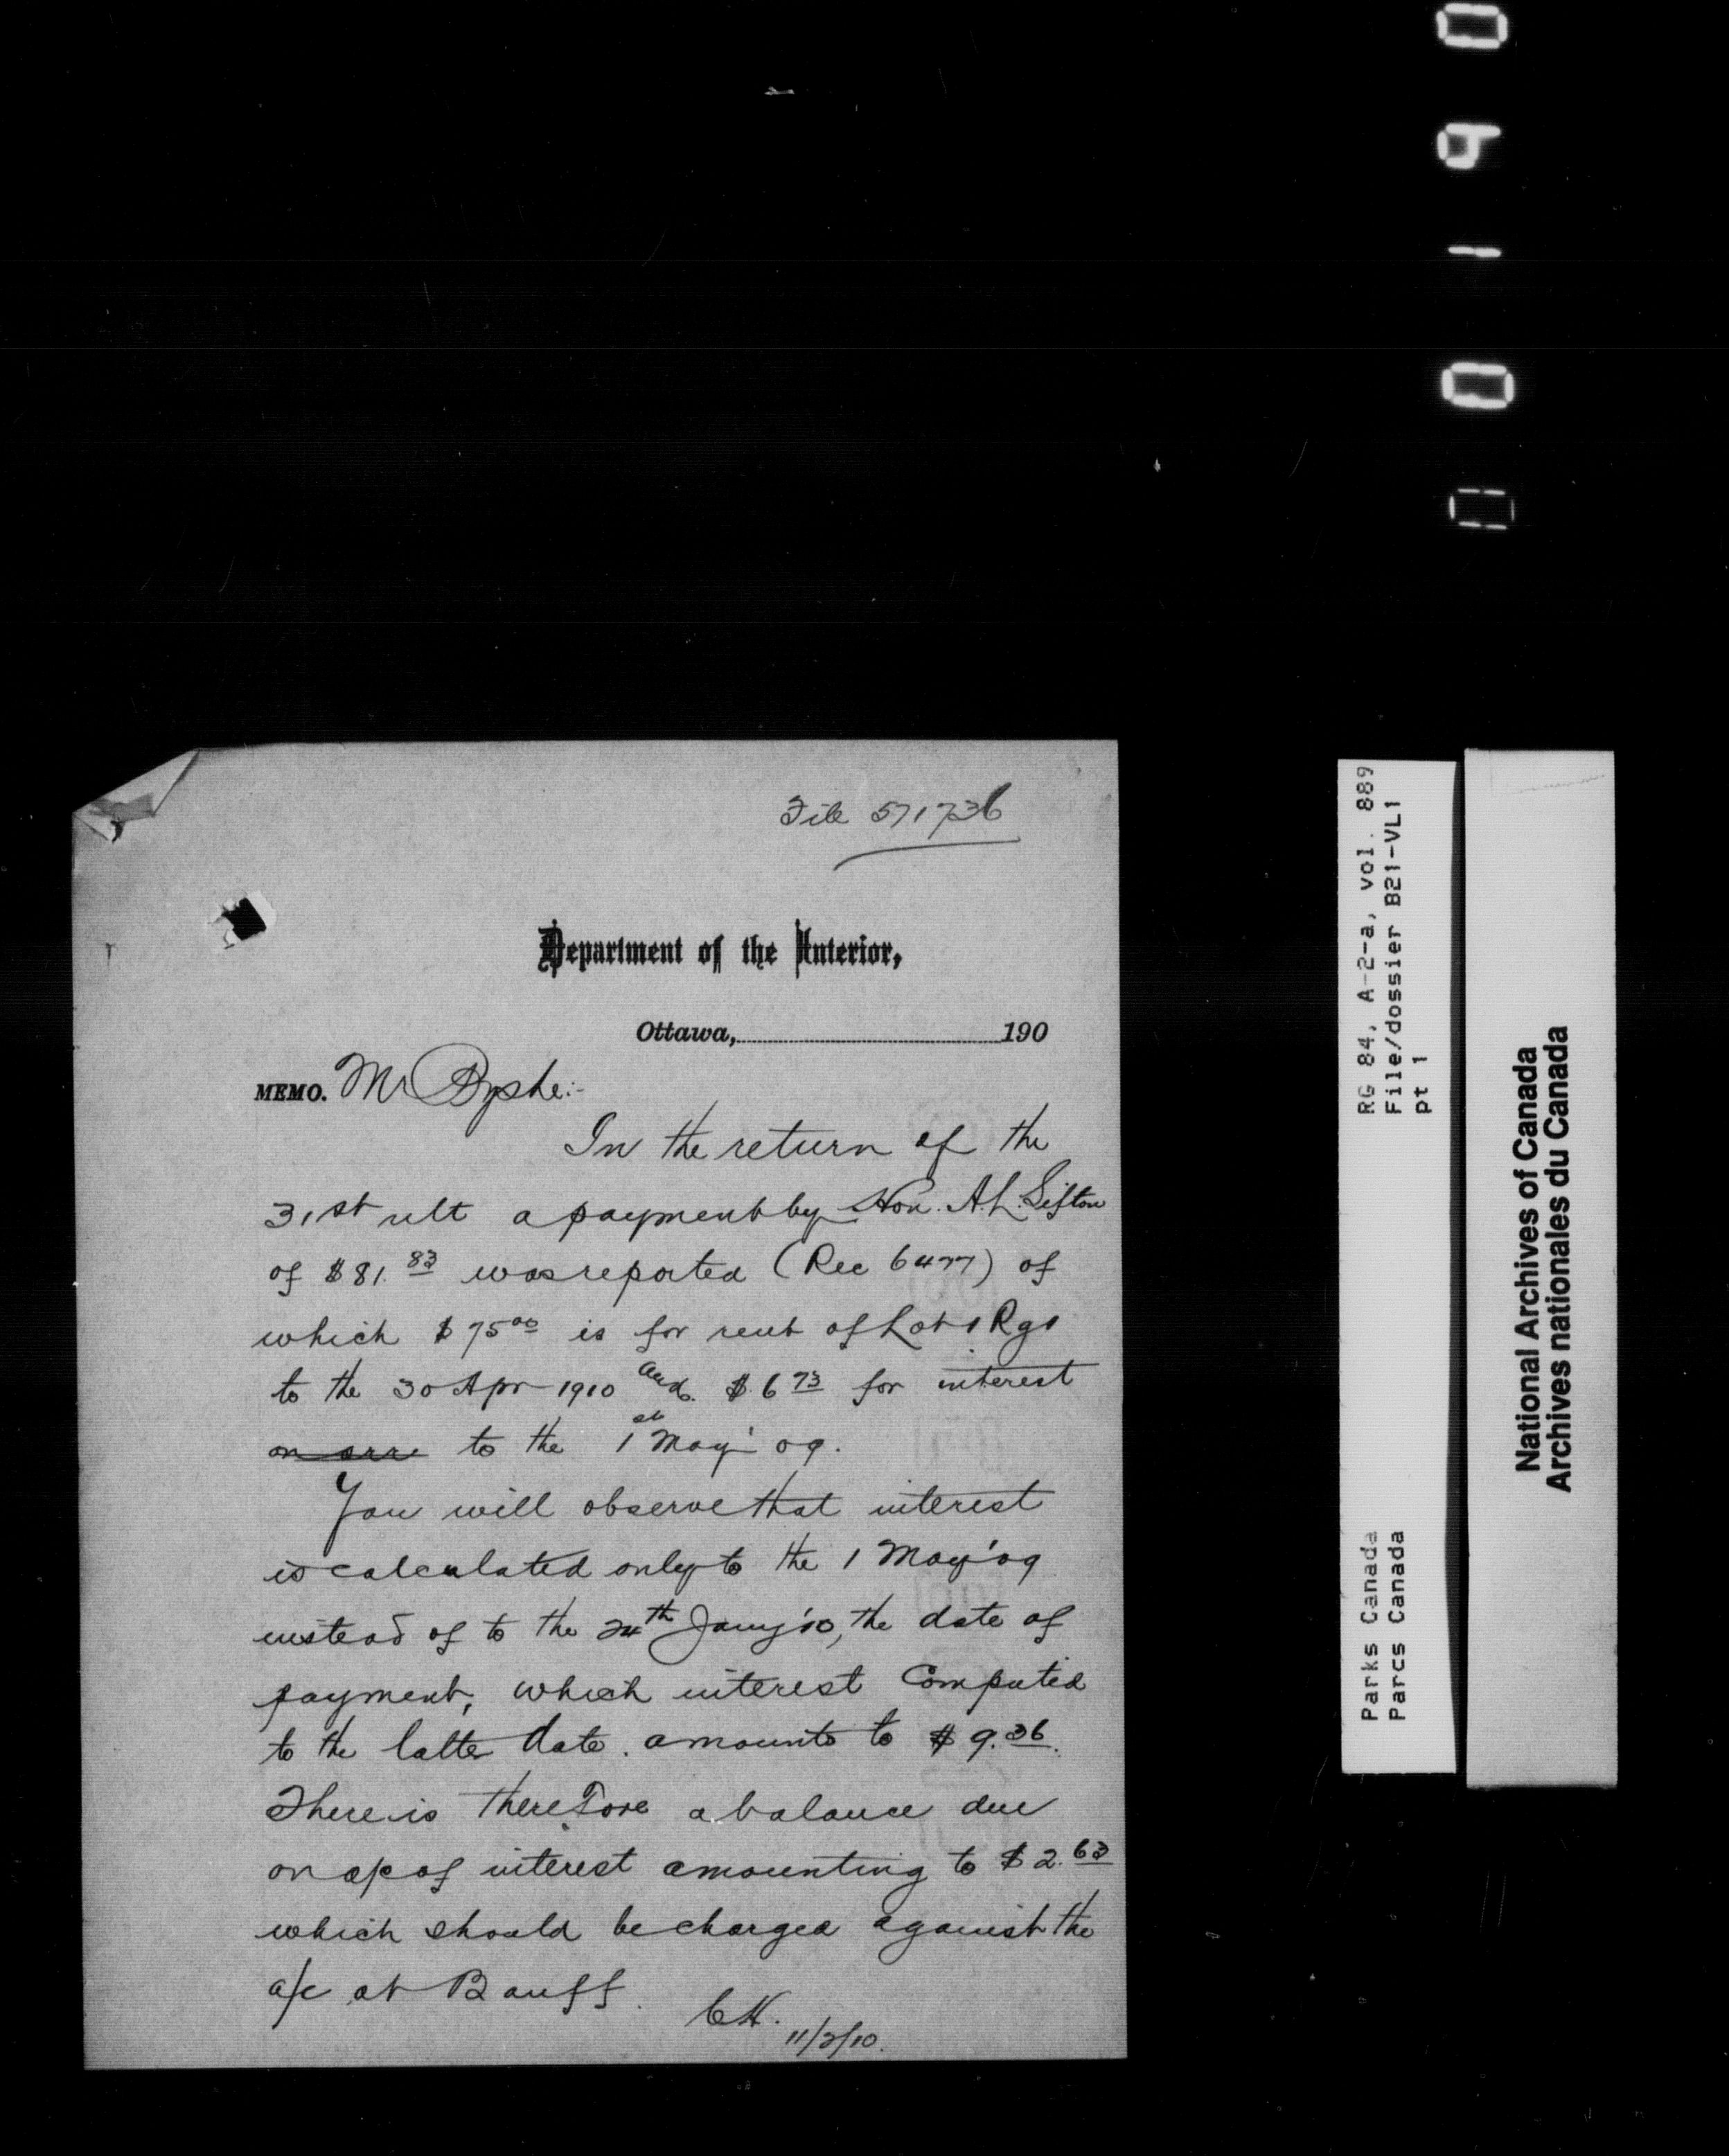 File 571736
Department of the Interior,
Ottawa, 190
MEMO. Mr Byshe:-
In the return of the
31st ult a payment by Hon. A.L. Sifton
of $81.83 was reported (Rec 6477) of
which $75 00 is for rent of Lot 1 Rg 1
to the 30 Apr 1910 and $6 73 for interest
on arre to the 1st May '09.
You will observe that interest
is calculated only to the 1 May '09
instead of to the 24th Jany '10, the date of
payment, which interest computed
to the latter date. amounts to $9.36.
There is therefore a balance due
on a/c of interest amounting to $2.63
which should be charged against the
a/c at Banff.
CH.
11/2/10.
RG 84, A-2-a, vol. 889
File/dossier B21-VL1
pt 1
Parks Canada
Parcs Canada
National Archives of Canada
Archives nationales du Canada